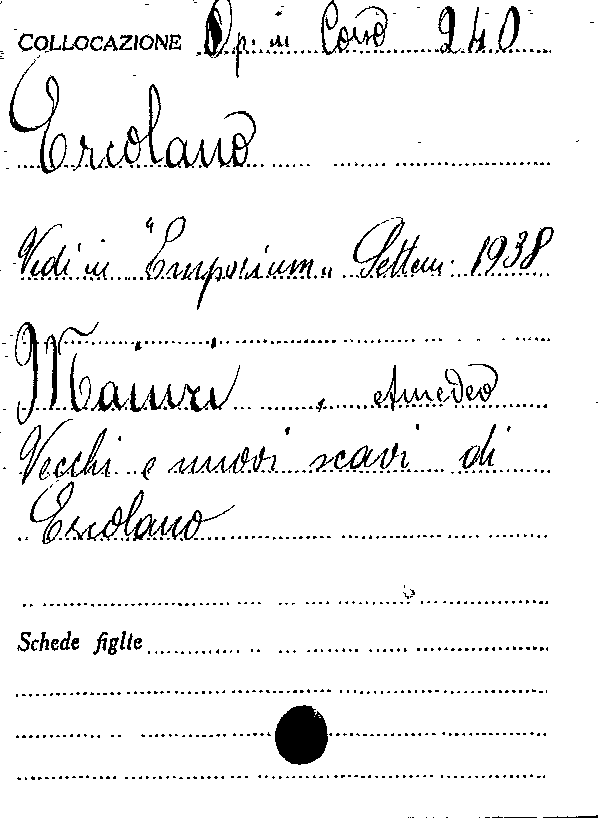 COLLOCAZIONE Op. in Corso 240
Ercolano
Vedi in "Emporium" Settem. 1938
Maiuri, Amedeo
Vecchi e nuovi scavi di
Ercolano
Schede figlie